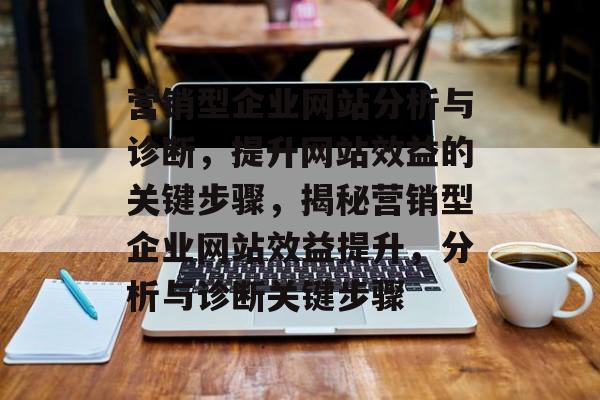 营销型企业网站分析与
诊断，提升网站效益的
关键步骤，揭秘营销型
企业网站效益提升，分
析与诊断关键步骤